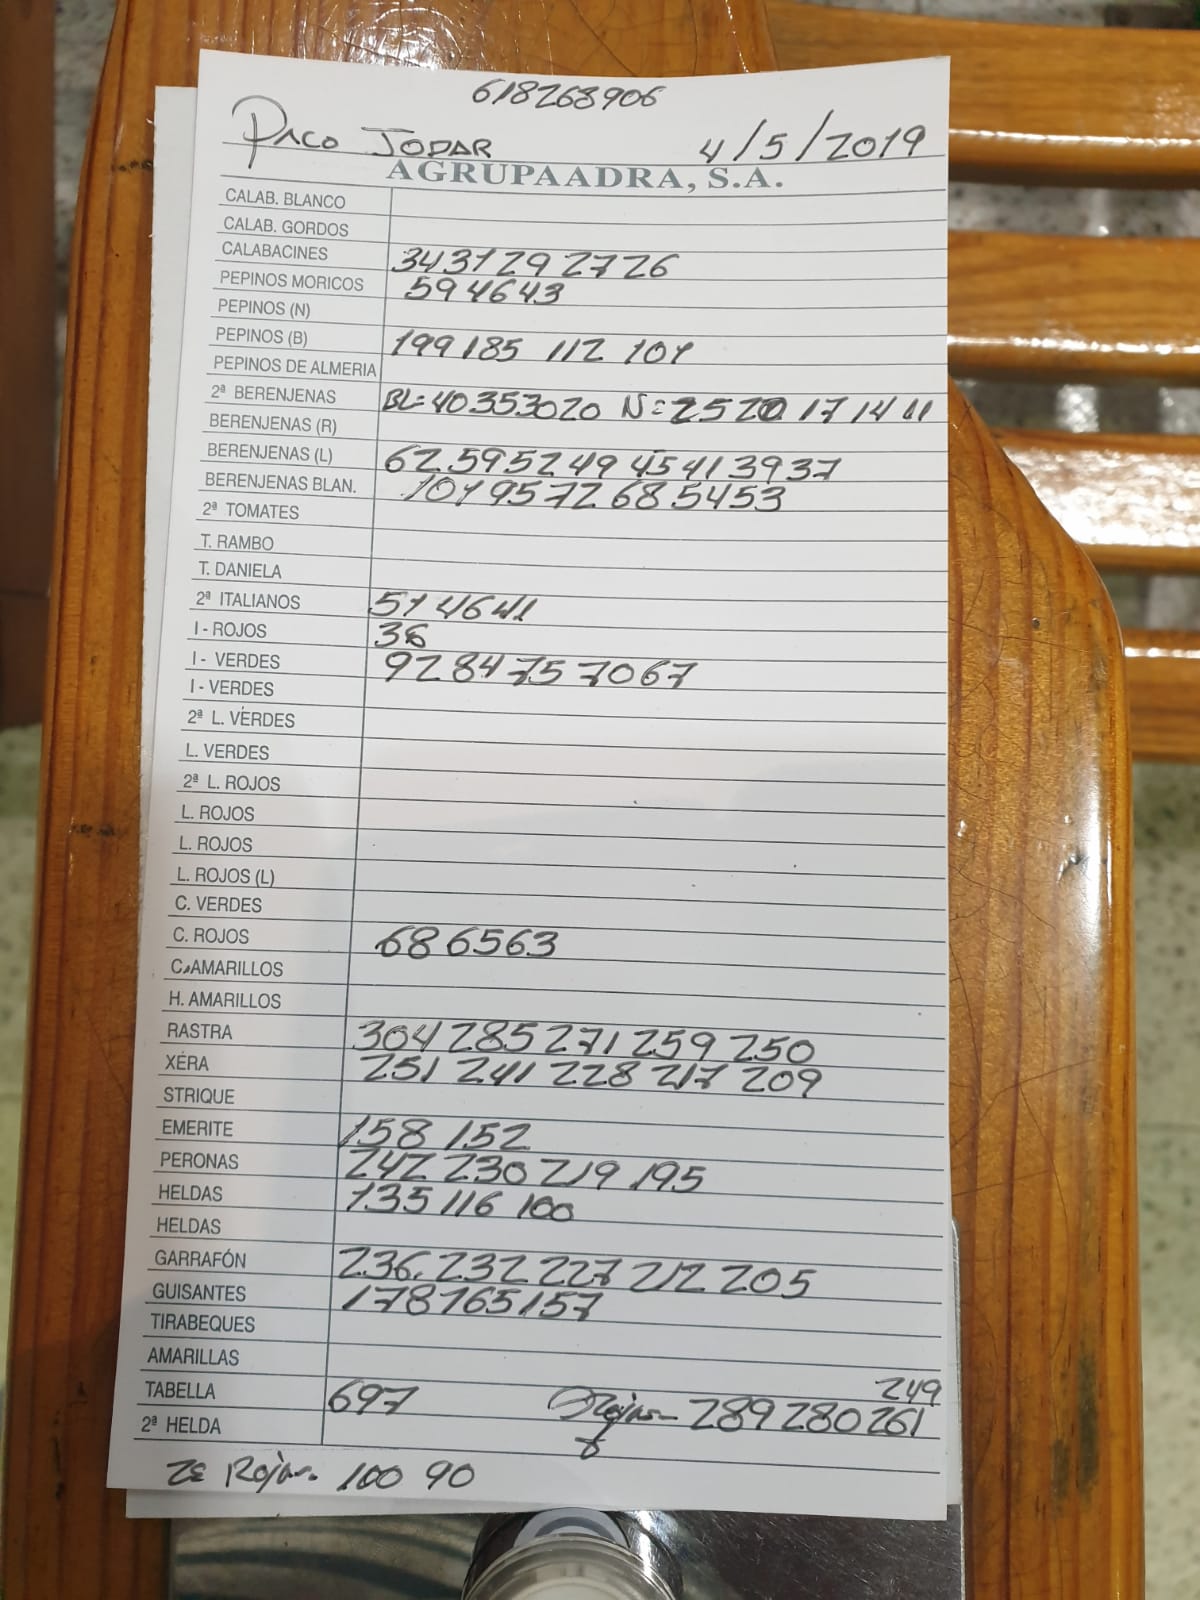 618268906
PACO JODAR 4/5/2019
AGRUPAADRA, S.A.
CALAB. BLANCO
CALAB. GORDOS
CALABACINES 34 31 29 27 26
PEPINOS MORICOS 59 46 43
PEPINOS (N)
PEPINOS (B) 199 185 112 101
PEPINOS DE ALMERIA
2ª BERENJENAS BL=40 35 30 20 N=25 20 17 14 11
BERENJENAS (R)
BERENJENAS (L) 62 59 52 49 45 41 39 37
BERENJENAS BLAN. 101 95 72 68 54 53
2ª TOMATES
T. RAMBO
T. DANIELA
2ª ITALIANOS 51 46 41
I - ROJOS 36
I - VERDES 92 84 75 70 67
I - VERDES
2ª L. VERDES
L. VERDES
2ª L. ROJOS
L. ROJOS
L. ROJOS
L. ROJOS (L)
C. VERDES
C. ROJOS 68 65 63
C. AMARILLOS
H. AMARILLOS
RASTRA 304 285 271 259 250
XÉRA 251 241 228 217 209
STRIQUE
EMERITE 158 152
PERONAS 242 230 219 195
HELDAS 135 116 100
HELDAS
GARRAFÓN 236 232 227 212 205
GUISANTES 178 165 157
TIRABEQUES
AMARILLAS
249
TABELLA 697 Rojas- 289 280 261
2ª HELDA
2ª Rojas. 100 90